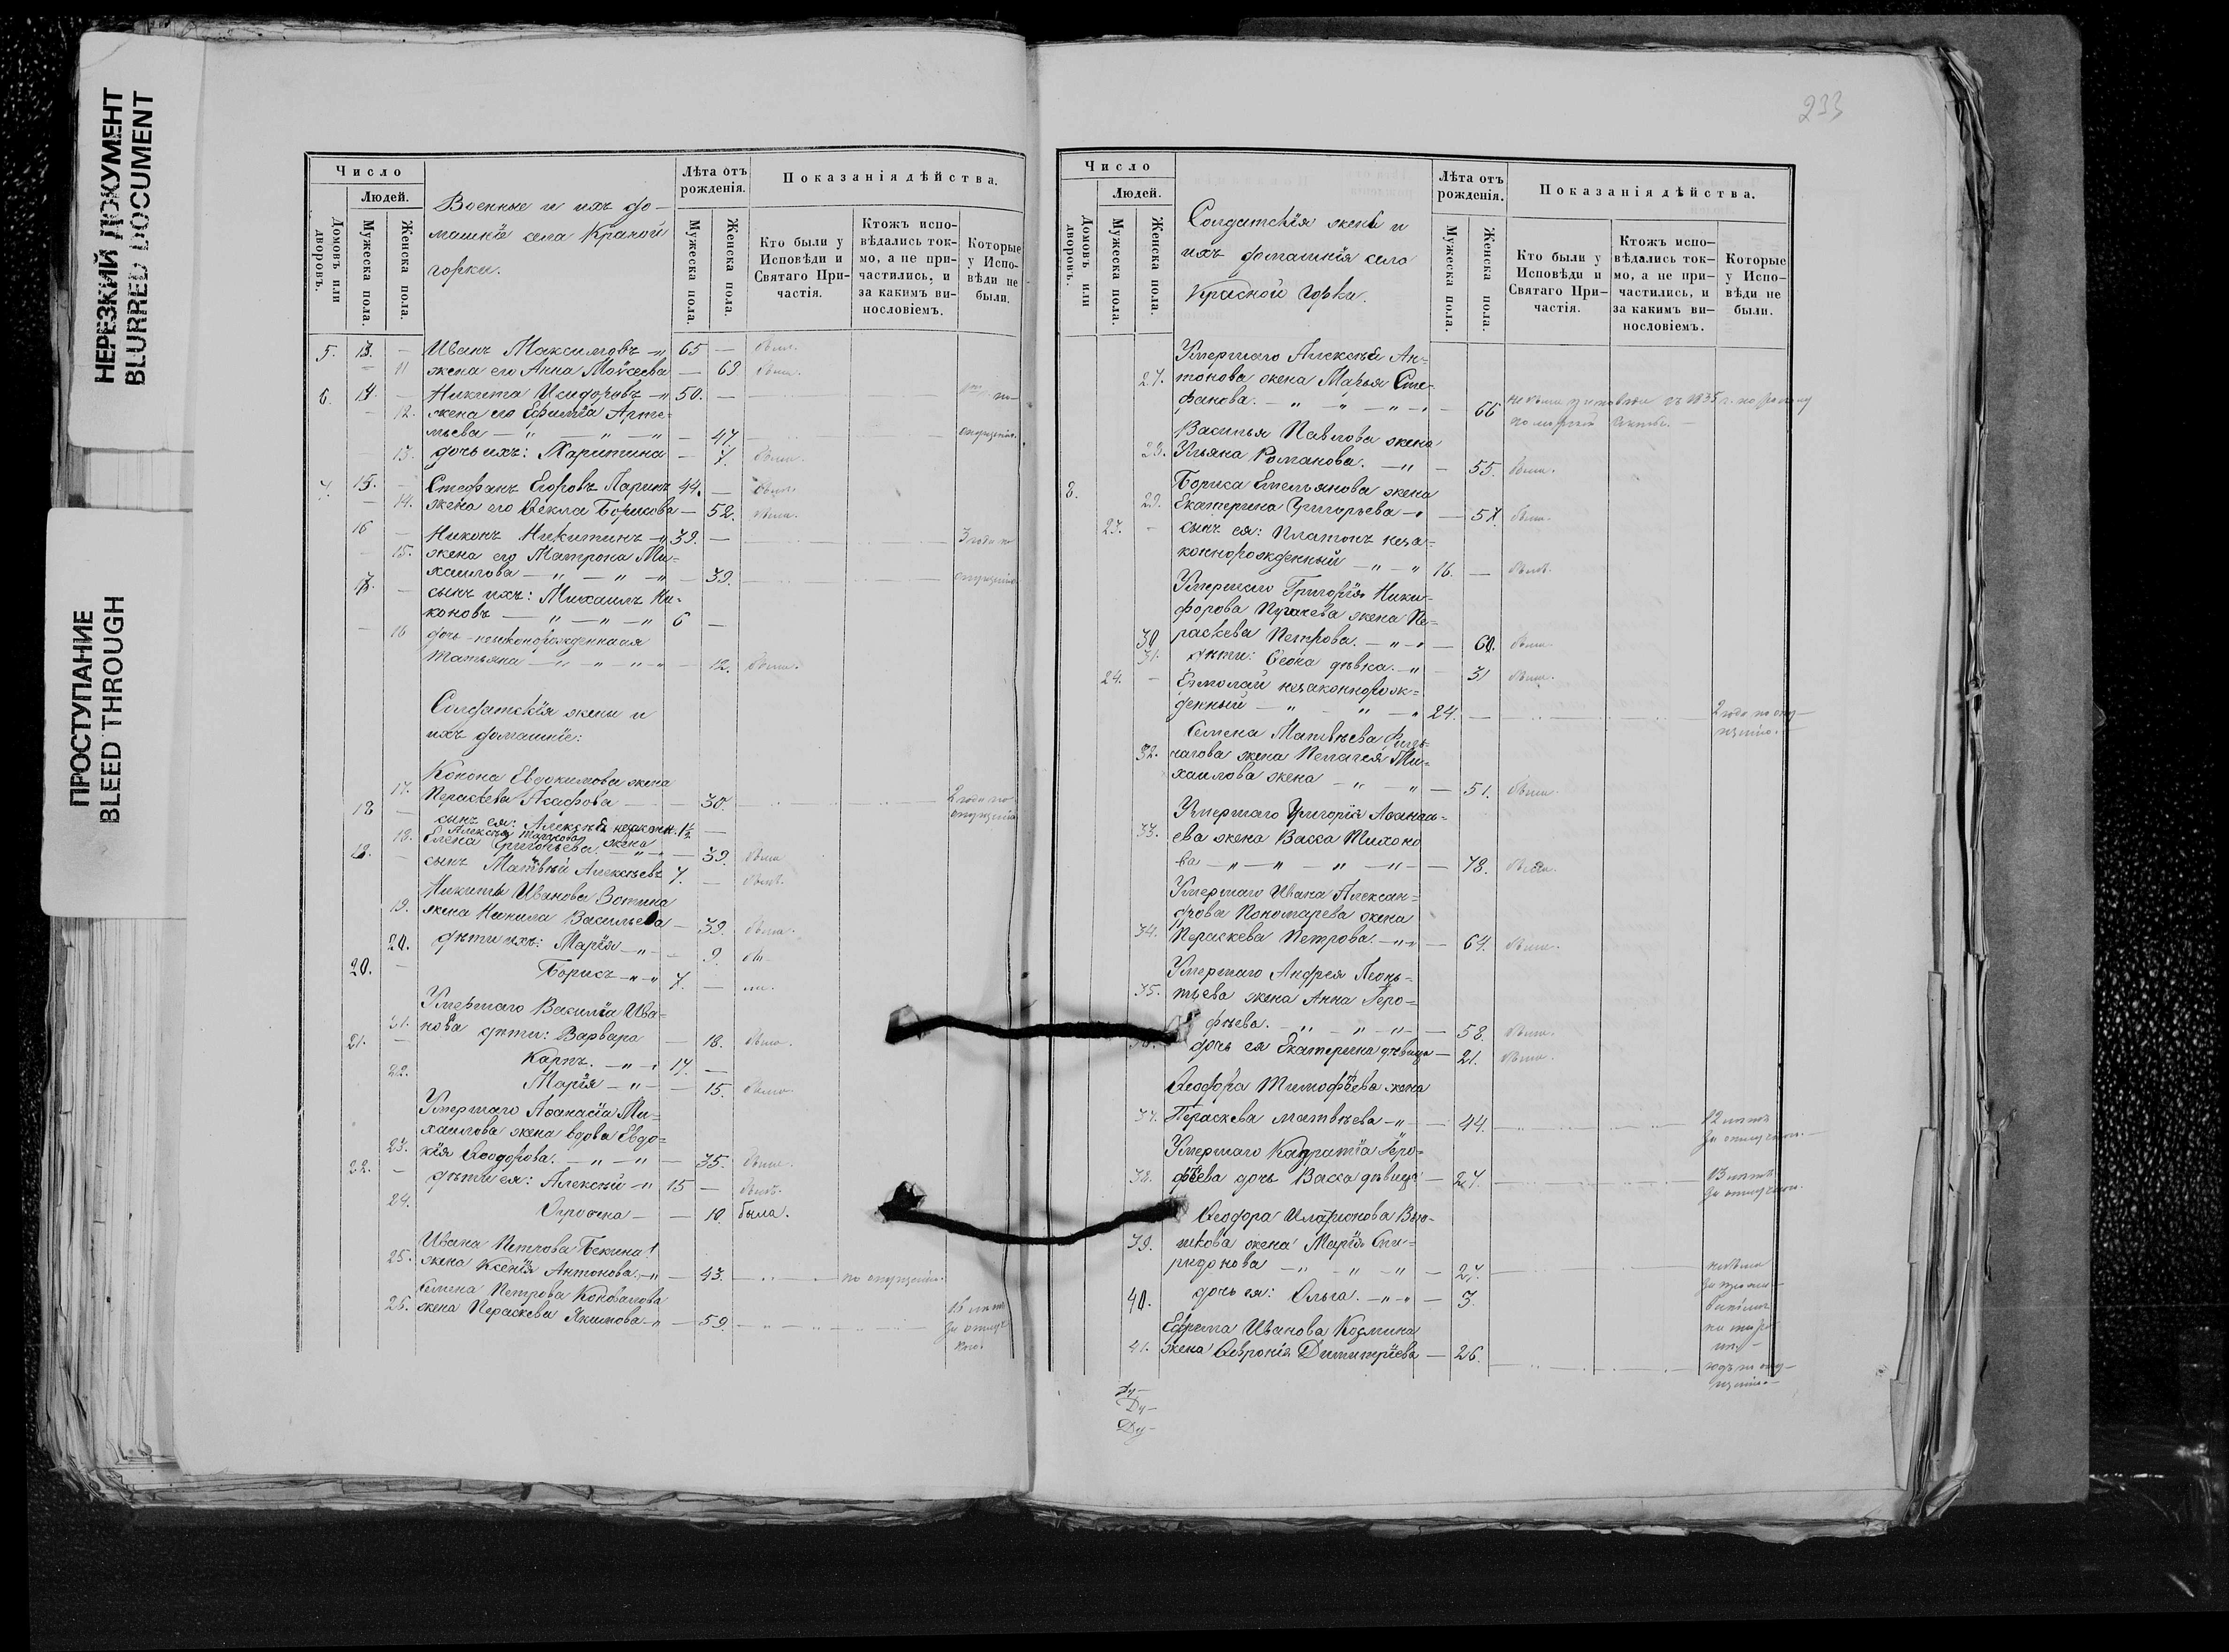 НЕРЕЗКИЙ ДОКУМЕНТ
BLURRED DOCUMENT
ПРОСТУПАНИЕ
BLEED THROUGH
Число
Людей.
Домовъ или дворовъ.
Мужеска пола.
Женска пола.
Военные и ихъ до-
машніе села Красной
горки.
Лѣта отъ рожденія.
Мужеска пола.
Женска пола.
Показанія дѣйства.
Кто были у Исповѣди и Святаго Причастія.
Ктожъ исповѣдались токмо, а не причастились, и за какимъ винословіемъ.
Которые у Исповѣди не были.
5. 13. — Иванъ Максимовъ 65 — былъ.
— 11 жена его Анна Моѵсеева — 63. была.
6. 14. — Никита Исидоровъ 50. —
— 12. жена его Ефимія Арте-
мьева — 47. опущенію.
13. дочь ихъ: Харитина — 7. была.
7. 15. — Стефанъ Егоровъ Ларинъ 44. — былъ.
— 14. жена его Ѳекла Борисова — 52. была.
16 — Никонъ Никитинъ 39. — 3 года по
— 15. жена его Матрона Ми-
хаилова — 39. опущенію
17. — сынъ ихъ: Михаилъ Ни-
коновъ 6 —
— 16 дочь незаконорожденная
Татьяна — 12. была.
Солдатскія жены и
ихъ домашніе:
Конона Евдокимова жена
17. Пераскева Агафова — 30. 2 года по
опущенію
18 — сынъ ея: Алексѣй незакон. 1½ —
Алексѣя
18. Елена Григорьева жена — 39. была
19. — сынъ Матвѣй Алексѣевъ 7. — былъ.
Никиты Иванова Зотина
19. жена Неонила Васильева — 39. была.
20. дѣти ихъ: Марія — 9.
20. — Борисъ 7. —
Умершаго Василія Ива-
21. нова дѣти: Варвара — 18. была.
21. — Карпъ. 17. —
22. Марія — 15. была.
Умершаго Аѳанасія Ми-
хаилова жена вдова Евдо-
23. кія Ѳеодорова. — 35. была.
22. — дѣти ея: Алексѣй 15 — былъ.
24. — 10. была.
Ивана Петрова Бекина
25. жена Ксенія Антонова — 43. по опущенію.
Семена Петрова Коновалова
26. жена Пераскева Якимова — 59. 16 лѣтъ
за отлуч
кою
233
Число
Людей.
Домовъ или дворовъ.
Мужеска пола.
Женска пола.
Солдатскія жены и
ихъ домашнія села
Красной горки.
Лѣта отъ рожденія.
Мужеска пола.
Женска пола.
Показанія дѣйства.
Кто были у Исповѣди и Святаго Причастія.
Ктожъ исповѣдались токмо, а не причастились, и за какимъ винословіемъ.
Которые у Исповѣди не были.
Умершаго Алексѣя Ан-
27. тонова жена Марья Сте-
фанова. — 66
Василья Павлова жена
28. Ульяна Романова. — 55. была.
8. Бориса Емельянова жена
29. Екатерина Григорьева — 57. была.
23. — сынъ ея: Платонъ неза-
коннорожденный 16. — былъ.
Умершаго Григорія Ники-
форова Пугачева жена Пе-
30. раскева Петрова. — 60. была
31. дѣти: Ѳеока дѣвка. — 31 была.
24. — Ермолай незаконнорож-
денный 24. — 2 года по опу-
щенію.
Семена Матвѣева
32. жена Пелагея Ми-
хаилова жена — 51. была.
Умершаго Григорія Аѳанась-
33. ева жена Васса Тихоно
ва — 78. была.
Умершаго Ивана Алексан-
дрова Пономарева жена
34. Пераскева Петрова. — 64. была.
Умершаго Андрея Леонь-
35. тьева жена Анна Геро-
фѣева. — 58. была.
дочь ея Екатерина дѣвица — 21. была.
Ѳеодора Тимофѣева жена
37. Пераскева Матвѣева — 44. 12 лѣтъ
за отлучкою.
Умершаго Кадратія Геро-
38. фѣева дочь Васса дѣвица — 27. 13 лѣтъ
за отлучкою.
Ѳеодора Иларіонова Вью-
39. шкова жена Марія Спи-
ридонова — 27.
40. дочь ея: Ольга. — 3.
Ефрема Иванова Козмина
41. жена Ѳевронія Димитріева — 26. годъ по опу-
щенію.
Ду-
Ду-
Ду-